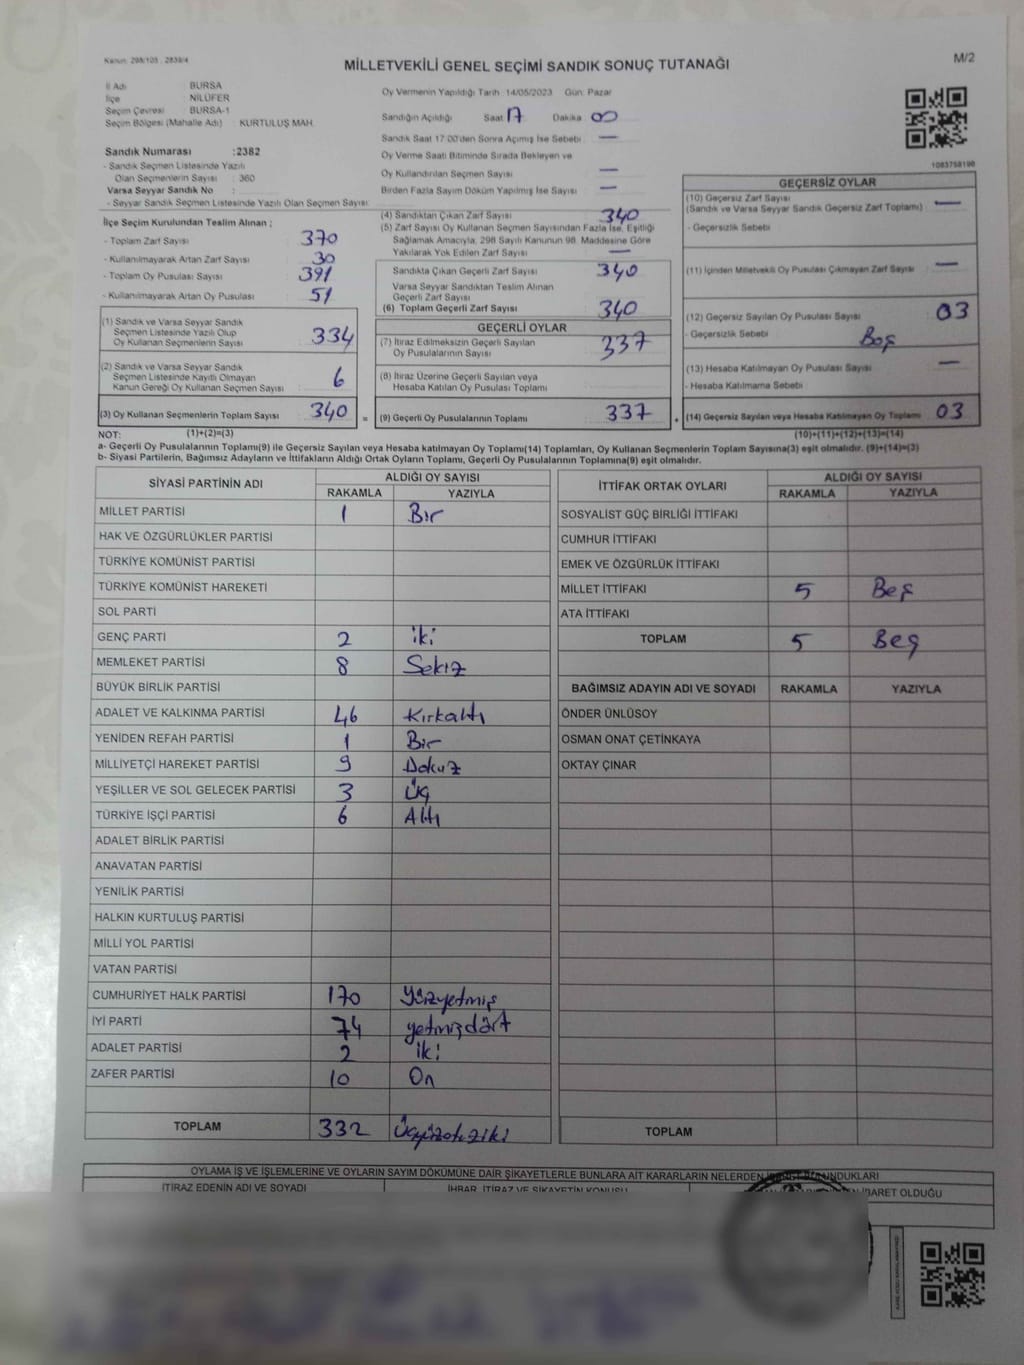 Kanun: 298/105 , 2839/4
MİLLETVEKİLİ GENEL SEÇİMİ SANDIK SONUÇ TUTANAĞI
M/2
İl Adı : BURSA
İlçe : NİLÜFER
Seçim Çevresi : BURSA-1
Seçim Bölgesi (Mahalle Adı) : KURTULUŞ MAH.
Sandık Numarası :2382
- Sandık Seçmen Listesinde Yazılı
Olan Seçmenlerin Sayısı : 360
Varsa Seyyar Sandık No :
- Seyyar Sandık Seçmen Listesinde Yazılı Olan Seçmen Sayısı:
Oy Vermenin Yapıldığı Tarih: 14/05/2023 Gün: Pazar
Sandığın Açıldığı Saat 17 Dakika 00
Sandık Saat 17:00'den Sonra Açılmış İse Sebebi : —
Oy Verme Saati Bitiminde Sırada Bekleyen ve
Oy Kullandırılan Seçmen Sayısı : —
Birden Fazla Sayım Döküm Yapılmış İse Sayısı : —
1083758190
İlçe Seçim Kurulundan Teslim Alınan ;
- Toplam Zarf Sayısı : 370
- Kullanılmayarak Artan Zarf Sayısı : 30
- Toplam Oy Pusulası Sayısı : 391
- Kullanılmayarak Artan Oy Pusulası : 51
(1) Sandık ve Varsa Seyyar Sandık
Seçmen Listesinde Yazılı Olup
Oy Kullanan Seçmenlerin Sayısı : 334
(2) Sandık ve Varsa Seyyar Sandık
Seçmen Listesinde Kayıtlı Olmayan
Kanun Gereği Oy Kullanan Seçmen Sayısı : 6
(3) Oy Kullanan Seçmenlerin Toplam Sayısı : 340
(1)+(2)=(3)
(4) Sandıktan Çıkan Zarf Sayısı : 340
(5) Zarf Sayısı Oy Kullanan Seçmen Sayısından Fazla İse, Eşitliği
Sağlamak Amacıyla, 298 Sayılı Kanunun 98. Maddesine Göre
Yakılarak Yok Edilen Zarf Sayısı : —
Sandıkta Çıkan Geçerli Zarf Sayısı : 340
Varsa Seyyar Sandıktan Teslim Alınan
Geçerli Zarf Sayısı
(6) Toplam Geçerli Zarf Sayısı : 340
GEÇERLİ OYLAR
(7) İtiraz Edilmeksizin Geçerli Sayılan
Oy Pusulalarının Sayısı : 337
(8) İtiraz Üzerine Geçerli Sayılan veya
Hesaba Katılan Oy Pusulası Toplamı :
= (9) Geçerli Oy Pusulalarının Toplamı : 337
GEÇERSİZ OYLAR
(10) Geçersiz Zarf Sayısı
(Sandık ve Varsa Seyyar Sandık Geçersiz Zarf Toplamı) : —
- Geçersizlik Sebebi :
(11) İçinden Milletvekili Oy Pusulası Çıkmayan Zarf Sayısı : —
(12) Geçersiz Sayılan Oy Pusulası Sayısı : 03
- Geçersizlik Sebebi : Boş
(13) Hesaba Katılmayan Oy Pusulası Sayısı : —
- Hesaba Katılmama Sebebi :
+ (14) Geçersiz Sayılan veya Hesaba Katılmayan Oy Toplamı : 03
(10)+(11)+(12)+(13)=(14)
NOT:
a- Geçerli Oy Pusulalarının Toplamı(9) ile Geçersiz Sayılan veya Hesaba katılmayan Oy Toplamı(14) Toplamları, Oy Kullanan Seçmenlerin Toplam Sayısına(3) eşit olmalıdır. (9)+(14)=(3)
b- Siyasi Partilerin, Bağımsız Adayların ve İttifakların Aldığı Ortak Oyların Toplamı, Geçerli Oy Pusulalarının Toplamına(9) eşit olmalıdır.
SİYASİ PARTİNİN ADI ALDIĞI OY SAYISI
RAKAMLA YAZIYLA
MİLLET PARTİSİ 1 Bir
HAK VE ÖZGÜRLÜKLER PARTİSİ
TÜRKİYE KOMÜNİST PARTİSİ
TÜRKİYE KOMÜNİST HAREKETİ
SOL PARTİ
GENÇ PARTİ 2 iki
MEMLEKET PARTİSİ 8 Sekiz
BÜYÜK BİRLİK PARTİSİ
ADALET VE KALKINMA PARTİSİ 46 Kırkaltı
YENİDEN REFAH PARTİSİ 1 Bir
MİLLİYETÇİ HAREKET PARTİSİ 9 Dokuz
YEŞİLLER VE SOL GELECEK PARTİSİ 3 Üç
TÜRKİYE İŞÇİ PARTİSİ 6 Altı
ADALET BİRLİK PARTİSİ
ANAVATAN PARTİSİ
YENİLİK PARTİSİ
HALKIN KURTULUŞ PARTİSİ
MİLLİ YOL PARTİSİ
VATAN PARTİSİ
CUMHURİYET HALK PARTİSİ 170 Yüzyetmiş
İYİ PARTİ 74 yetmişdört
ADALET PARTİSİ 2 iki
ZAFER PARTİSİ 10 On
TOPLAM 332 Üçyüzotuziki
İTTİFAK ORTAK OYLARI ALDIĞI OY SAYISI
RAKAMLA YAZIYLA
SOSYALİST GÜÇ BİRLİĞİ İTTİFAKI
CUMHUR İTTİFAKI
EMEK VE ÖZGÜRLÜK İTTİFAKI
MİLLET İTTİFAKI 5 Beş
ATA İTTİFAKI
TOPLAM 5 Beş
BAĞIMSIZ ADAYIN ADI VE SOYADI RAKAMLA YAZIYLA
ÖNDER ÜNLÜSOY
OSMAN ONAT ÇETİNKAYA
OKTAY ÇINAR
TOPLAM
OYLAMA İŞ VE İŞLEMLERİNE VE OYLARIN SAYIM DÖKÜMÜNE DAİR ŞİKAYETLERLE BUNLARA AİT KARARLARIN NELERDEN
İTİRAZ EDENİN ADI VE SOYADI İHBAR, İTİRAZ VE ŞİKAYETİN KONUSU İBARET OLDUĞU